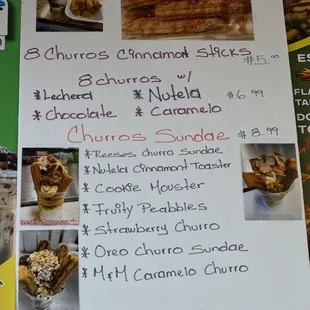 8 Churros Cinnamon Sticks $5.00
8 churros w/
* Lechera * Nutela $6.99
* Chocolate * Caramelo
Churros Sundae $8.99
* Reeses Churro Sundae
* Nutela Cinnamont Toaster
* Cookie Mouster
* Fruity Peabbles
* Strawberry Churro
* Oreo Churro Sundae
* M&M Caramelo Churro
ES
FLA
TA
DO